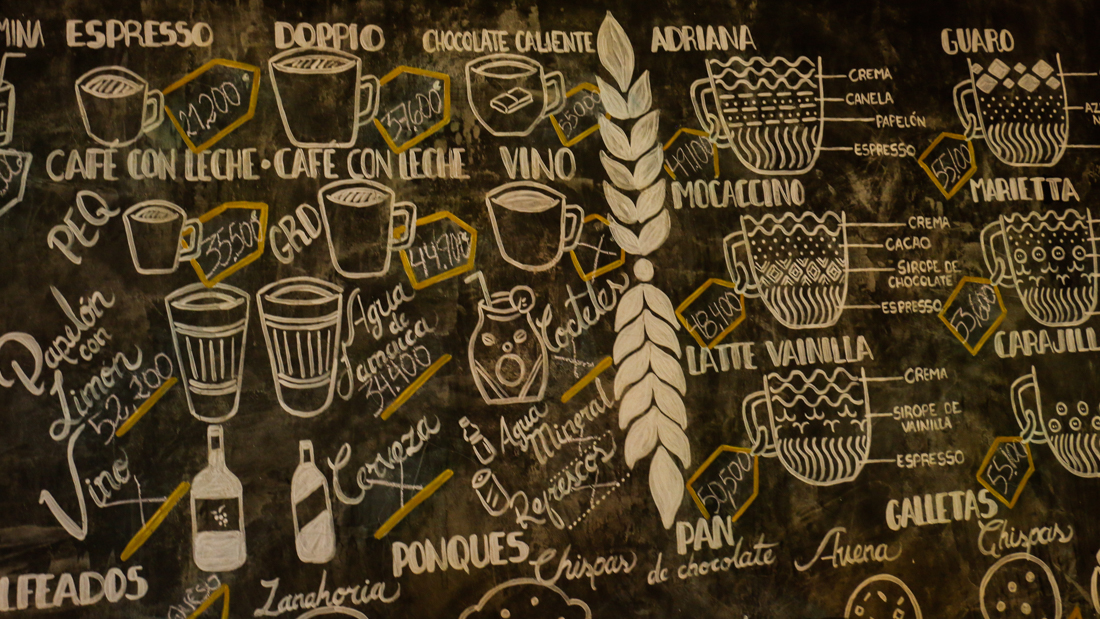 MINA
ESPRESSO
DOPPIO
CHOCOLATE CALIENTE
21,200
37,600
CAFÉ CON LECHE · CAFÉ CON LECHE
VINO
PEQ
35,500
GRD
44,900
Papelón
con
Limón
52,200
Agua
de
Jamaica
34,400
Cocteles
Vino
Cerveza
Agua
Mineral
Refrescos
LFEADOS
QUESO
Zanahoria
PONQUES
Chispas
de chocolate
PAN
Avena
ADRIANA
49,100
CREMA
CANELA
PAPELÓN
ESPRESSO
MOCACCINO
48,400
CREMA
CACAO
SIROPE DE
CHOCOLATE
ESPRESSO
LATTE VAINILLA
50,500
CREMA
SIROPE DE
VAINILLA
ESPRESSO
GUARO
MARIETTA
53,600
CARAJILL
GALLETAS
Chispas